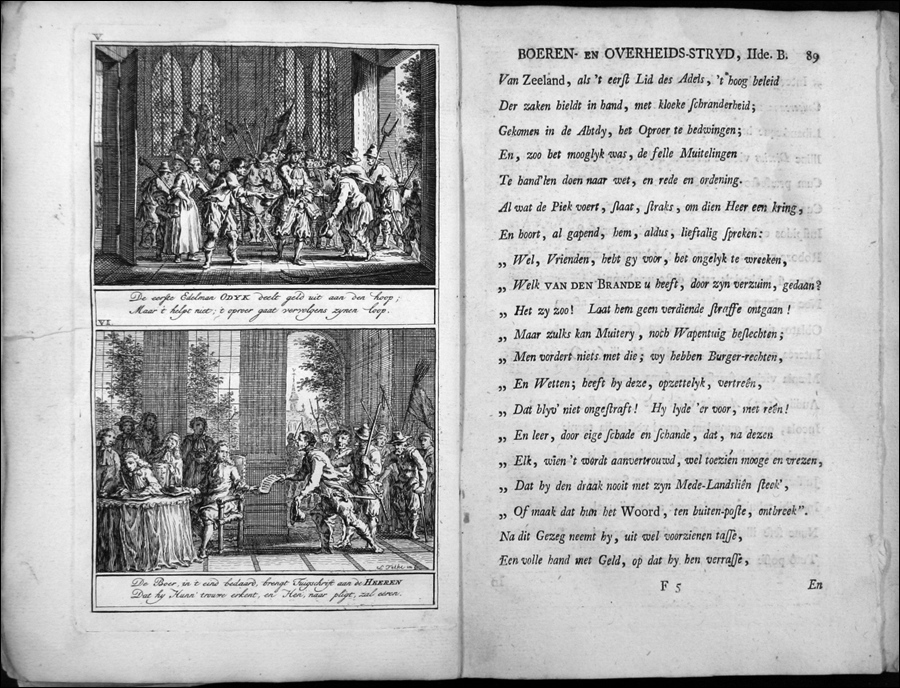 V.
De eerste Edelman ODYK deelt geld uit aan den hoop;
Maar 't helpt niet; 't oproer gaat vervolgens zynen loop.
VI.
De Boer, in 't eind bedaard, brengt Tuigschrift aan de HEEREN
Dat hy Hunn' trouwe erkent, en Hen, naar pligt, zal eeren.
BOEREN- EN OVERHEIDS-STRYD, IIde. B. 89
Van Zeeland, als 't eerſt Lid des Adels, 't hoog beleid
Der zaken hieldt in hand, met kloeke ſchranderheid;
Gekomen in de Abtdy, het Oproer te bedwingen;
En, zoo het mooglyk was, de felle Muitelingen
Te hand'len doen naar wet, en rede en ordening.
Al wat de Piek voert, ſlaat, ſtraks, om dien Heer een kring,
En hoort, al gapend, hem, aldus, lieftalig ſpreken:
„ Wel, Vrienden, hebt gy voor, het ongelyk te wreeken,
„ Welk VAN DEN BRANDE u heeft, door zyn verzuim, gedaan?
„ Het zy zoo! Laat hem geen verdiende ſtraffe ontgaan!
„ Maar zulks kan Muitery, noch Wapentuig beſlechten;
„ Men vordert niets met die; wy hebben Burger-rechten,
„ En Wetten; heeft hy deze, opzettelyk, vertreên,
„ Dat blyv' niet ongeſtraft! Hy lyde 'er voor, met reên!
„ En leer, door eige ſchade en ſchande, dat, na dezen
„ Elk, wien 't wordt aanvertrouwd, wel toezién mooge en vrezen,
„ Dat hy den draak nooit met zyn Mede-Landsliên ſteek',
„ Of maak dat hun het Woord, ten buiten-poſte, ontbreek".
Na dit Gezeg neemt hy, uit wel voorzienen taſſe,
Een volle hand met Geld, op dat hy hen verraſſe,
F 5 En